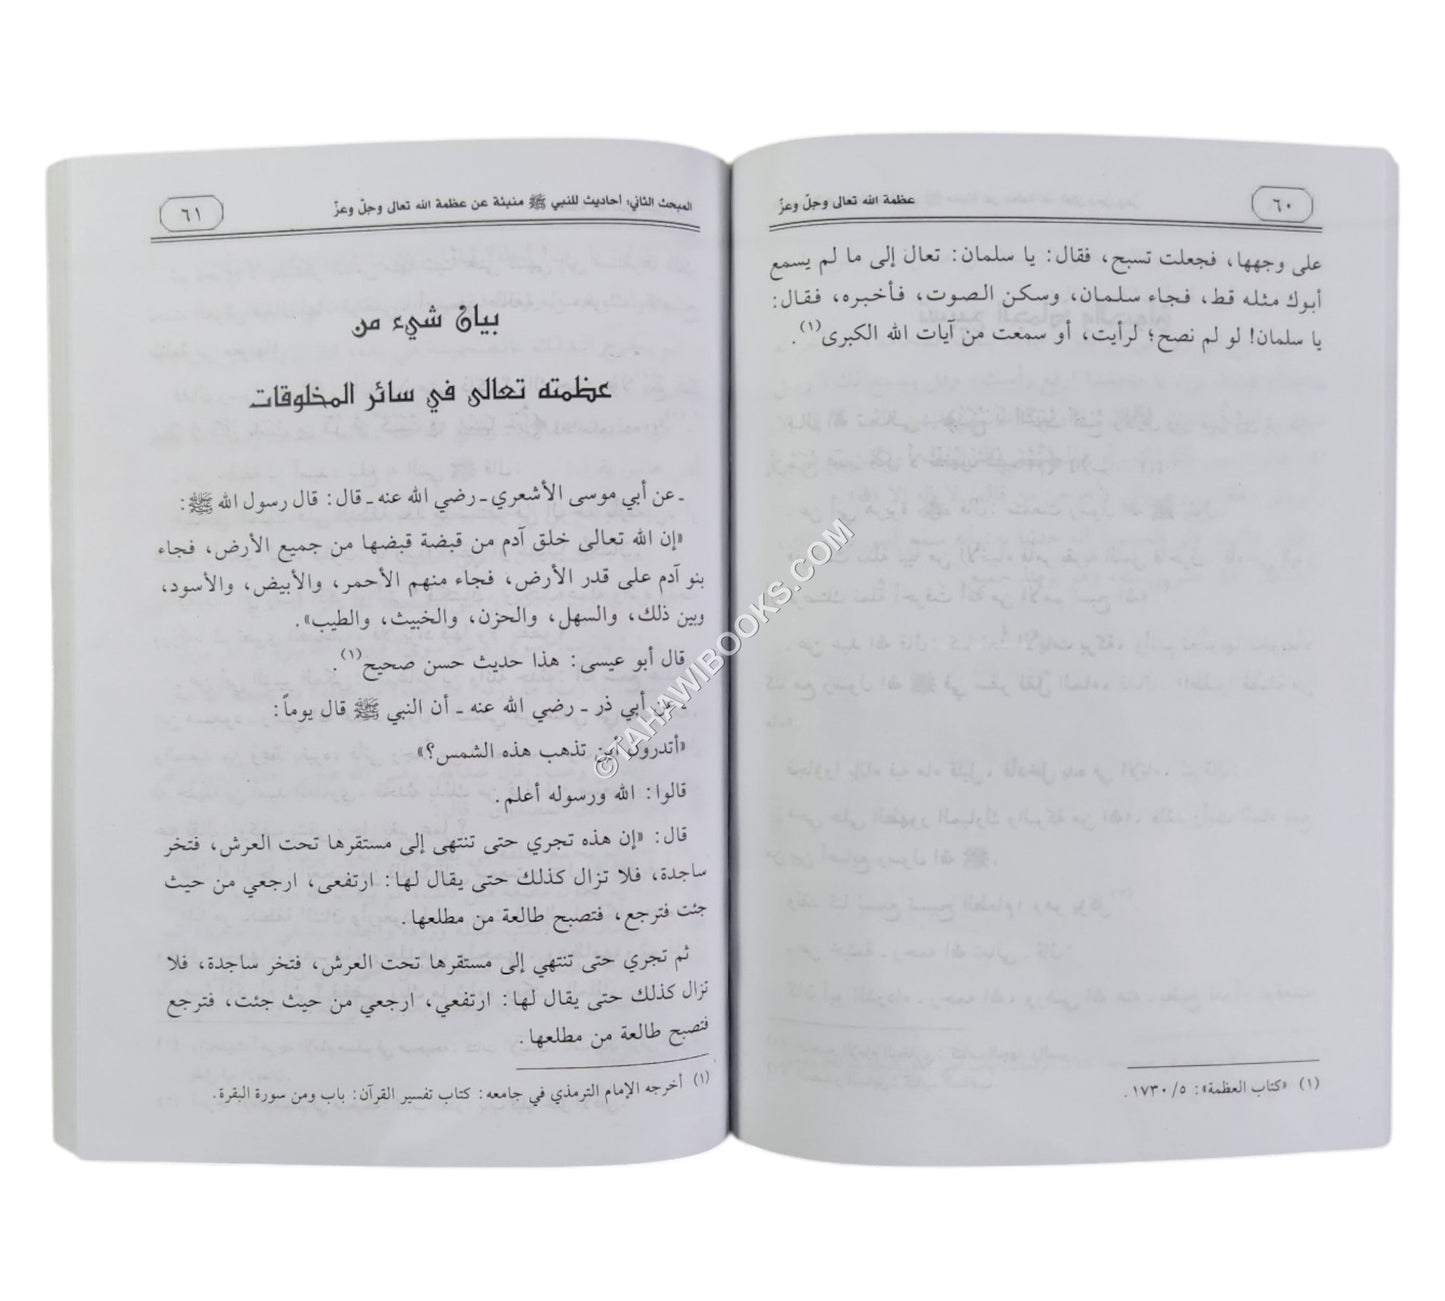 عظمة الله تعالى وجلّ وعزّ
٦٠
على وجهها، فجعلت تسبح، فقال: يا سلمان: تعال إلى ما لم يسمع
أبوك مثله قط، فجاء سلمان، وسكن الصوت، فأخبره، فقال:
يا سلمان! لو لم نصح؛ لرأيت، أو سمعت من آيات الله الكبرى(١).
(١) «كتاب العظمة»: ٥/ ١٧٣٠.
المبحث الثاني: أحاديث للنبي ﷺ منبئة عن عظمة الله تعالى وجلّ وعزّ
٦١
بيان شيء من
عظمته تعالى في سائر المخلوقات
ـ عن أبي موسى الأشعري ـ رضي الله عنه ـ قال: قال رسول الله ﷺ:
«إن الله تعالى خلق آدم من قبضة قبضها من جميع الأرض، فجاء
بنو آدم على قدر الأرض، فجاء منهم الأحمر، والأبيض، والأسود،
وبين ذلك، والسهل، والحزن، والخبيث، والطيب».
قال أبو عيسى: هذا حديث حسن صحيح(١).
ـ عن أبي ذر ـ رضي الله عنه ـ أن النبي ﷺ قال يوماً:
«أتدرون أين تذهب هذه الشمس؟»
قالوا: الله ورسوله أعلم.
قال: «إن هذه تجري حتى تنتهى إلى مستقرها تحت العرش، فتخر
ساجدة، فلا تزال كذلك حتى يقال لها: ارتفعى، ارجعي من حيث
جئت فترجع، فتصبح طالعة من مطلعها.
ثم تجري حتى تنتهي إلى مستقرها تحت العرش، فتخر ساجدة، فلا
تزال كذلك حتى يقال لها: ارتفعي، ارجعي من حيث جئت، فترجع
فتصبح طالعة من مطلعها.
(١) أخرجه الإمام الترمذي في جامعه: كتاب تفسير القرآن: باب ومن سورة البقرة.
©TAHAWIBOOKS.COM